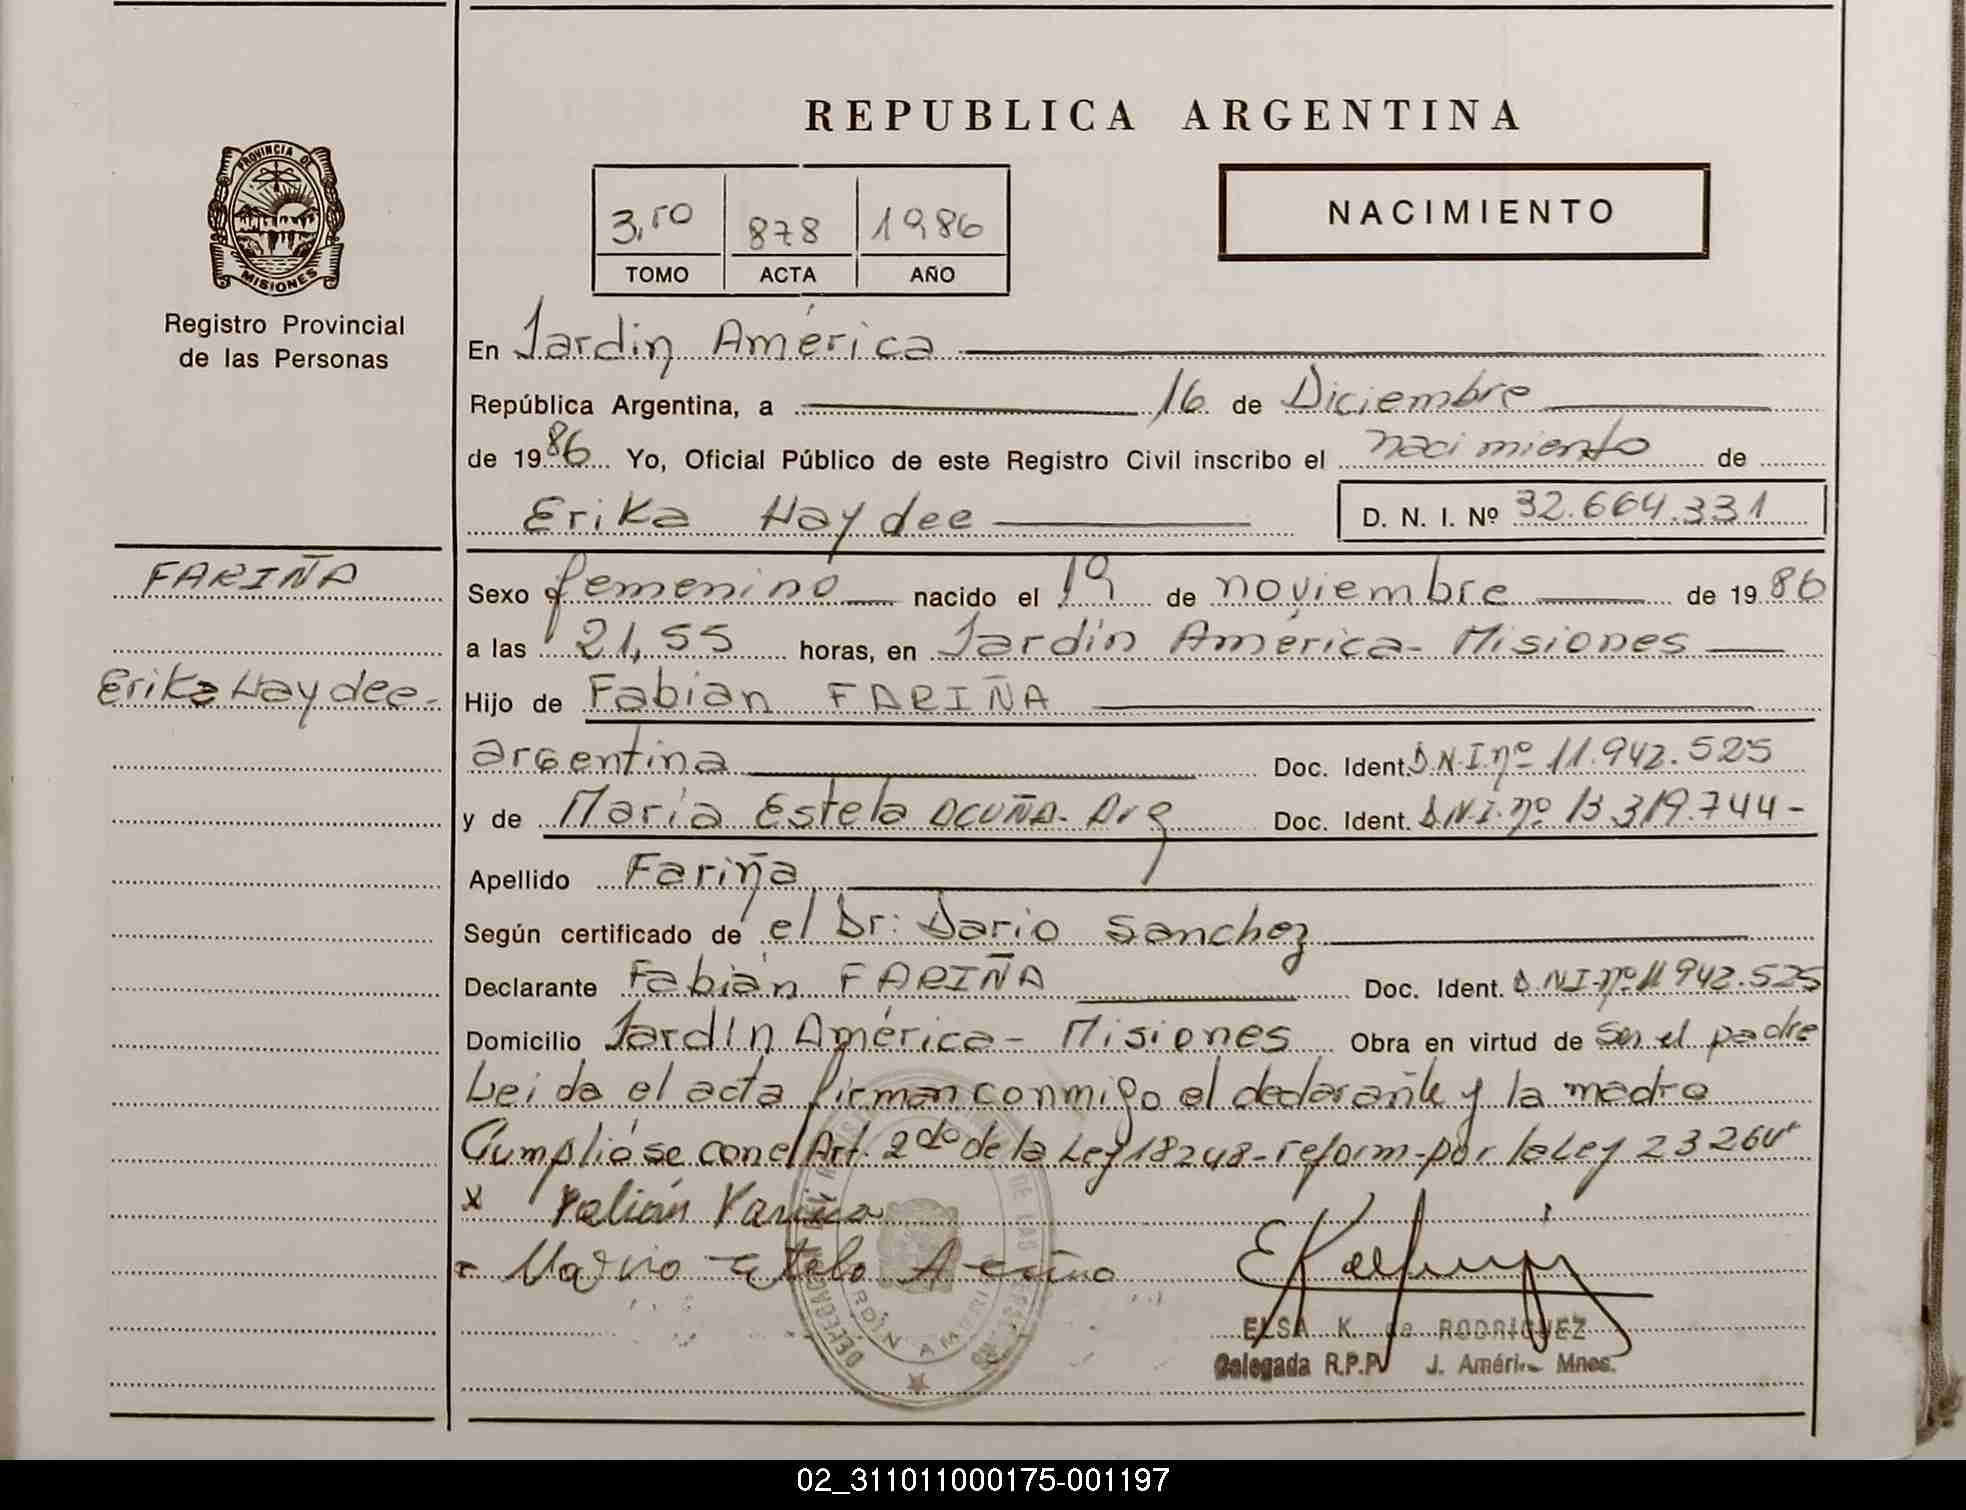 REPUBLICA ARGENTINA
PROVINCIA DE
MISIONES
Registro Provincial
de las Personas
NACIMIENTO
878 1986
TOMO ACTA AÑO
En Jardin América
República Argentina, a 16 de Diciembre
de 1986 Yo, Oficial Público de este Registro Civil inscribo el nacimiento de
Erika Haydee D. N. I. Nº 32.664.331
FARIÑA
Erika Haydee-
Sexo femenino nacido el 19 de noviembre de 1986
a las 21,55 horas, en Jardín América- Misiones
Hijo de Fabian FARIÑA
argentina Doc. Ident. D.N.I.nº 11.942.525
y de María Estela ACUÑA- Arg Doc. Ident. D.N.I.nº 13.319.744-
Apellido Fariña
Según certificado de el Dr: Dario Sanchez
Declarante Fabián FARIÑA Doc. Ident. D.N.I.nº 11.942.525
Domicilio Jardín América- Misiones Obra en virtud de ser el padre
Leida el acta firman conmigo el declarante y la madre
Cumplióse con el Art. 2do de la Ley 18248- reform- por la Ley 23264
x Fabián Fariña
ELSA K. de RODRIGUEZ
Delegada R.P.P. J. América Mnes.
02_311011000175-001197